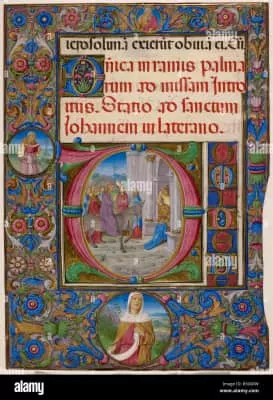 ierosolima exierūt obviā ei. Cū
Dnica in ramis palma
rum ad missam Intro
itus. Statio ad sanctum
Iohannem in laterano.
alamy
www.alamy.com